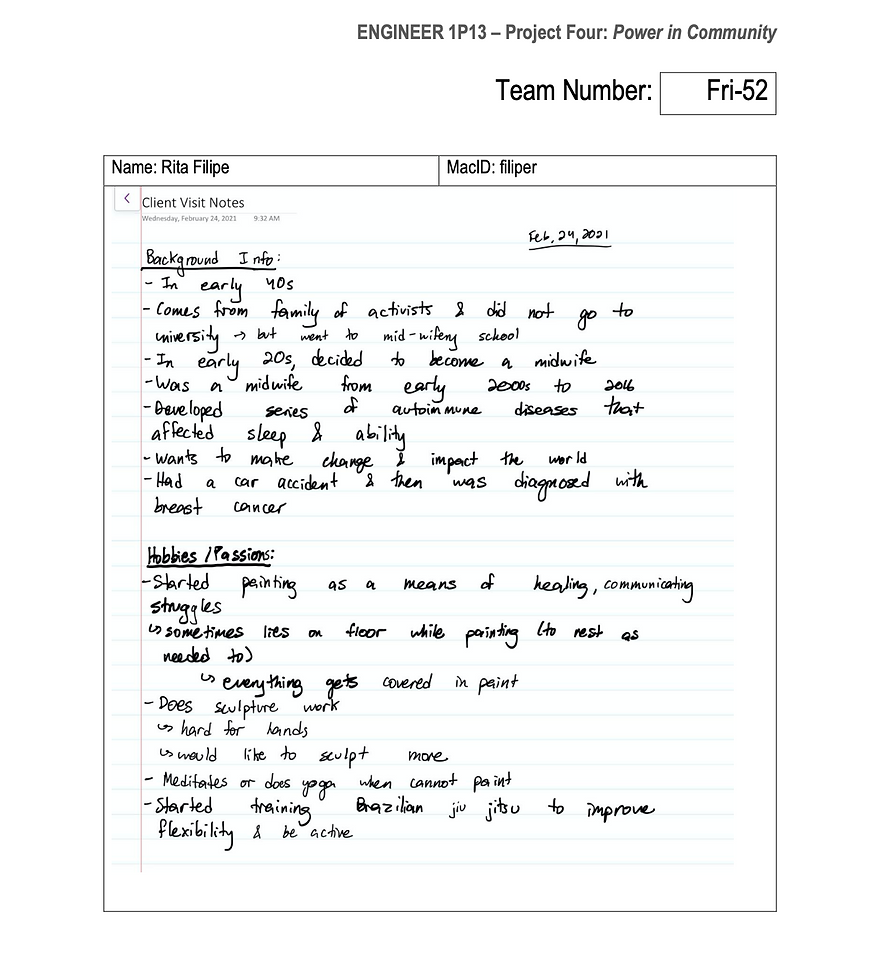 ENGINEER 1P13 – Project Four: Power in Community
Team Number: Fri-52
Name: Rita Filipe MacID: filiper
Client Visit Notes
Wednesday, February 24, 2021 9:32 AM
Feb. 24, 2021
Background Info:
- In early 40s
- Comes from family of activists & did not go to
university → but went to mid-wifery school
- In early 20s, decided to become a midwife
- Was a midwife from early 2000s to 2016
- Developed series of autoimmune diseases that
affected sleep & ability
- wants to make change & impact the world
- Had a car accident & then was diagnosed with
breast cancer
Hobbies / Passions:
- Started painting as a means of healing, communicating
struggles
↳ sometimes lies on floor while painting (to rest as
needed to)
↳ everything gets covered in paint
- Does sculpture work
↳ hard for hands
↳ would like to sculpt more
- Meditates or does yoga when cannot paint
- Started training Brazilian jiu jitsu to improve
flexibility & be active